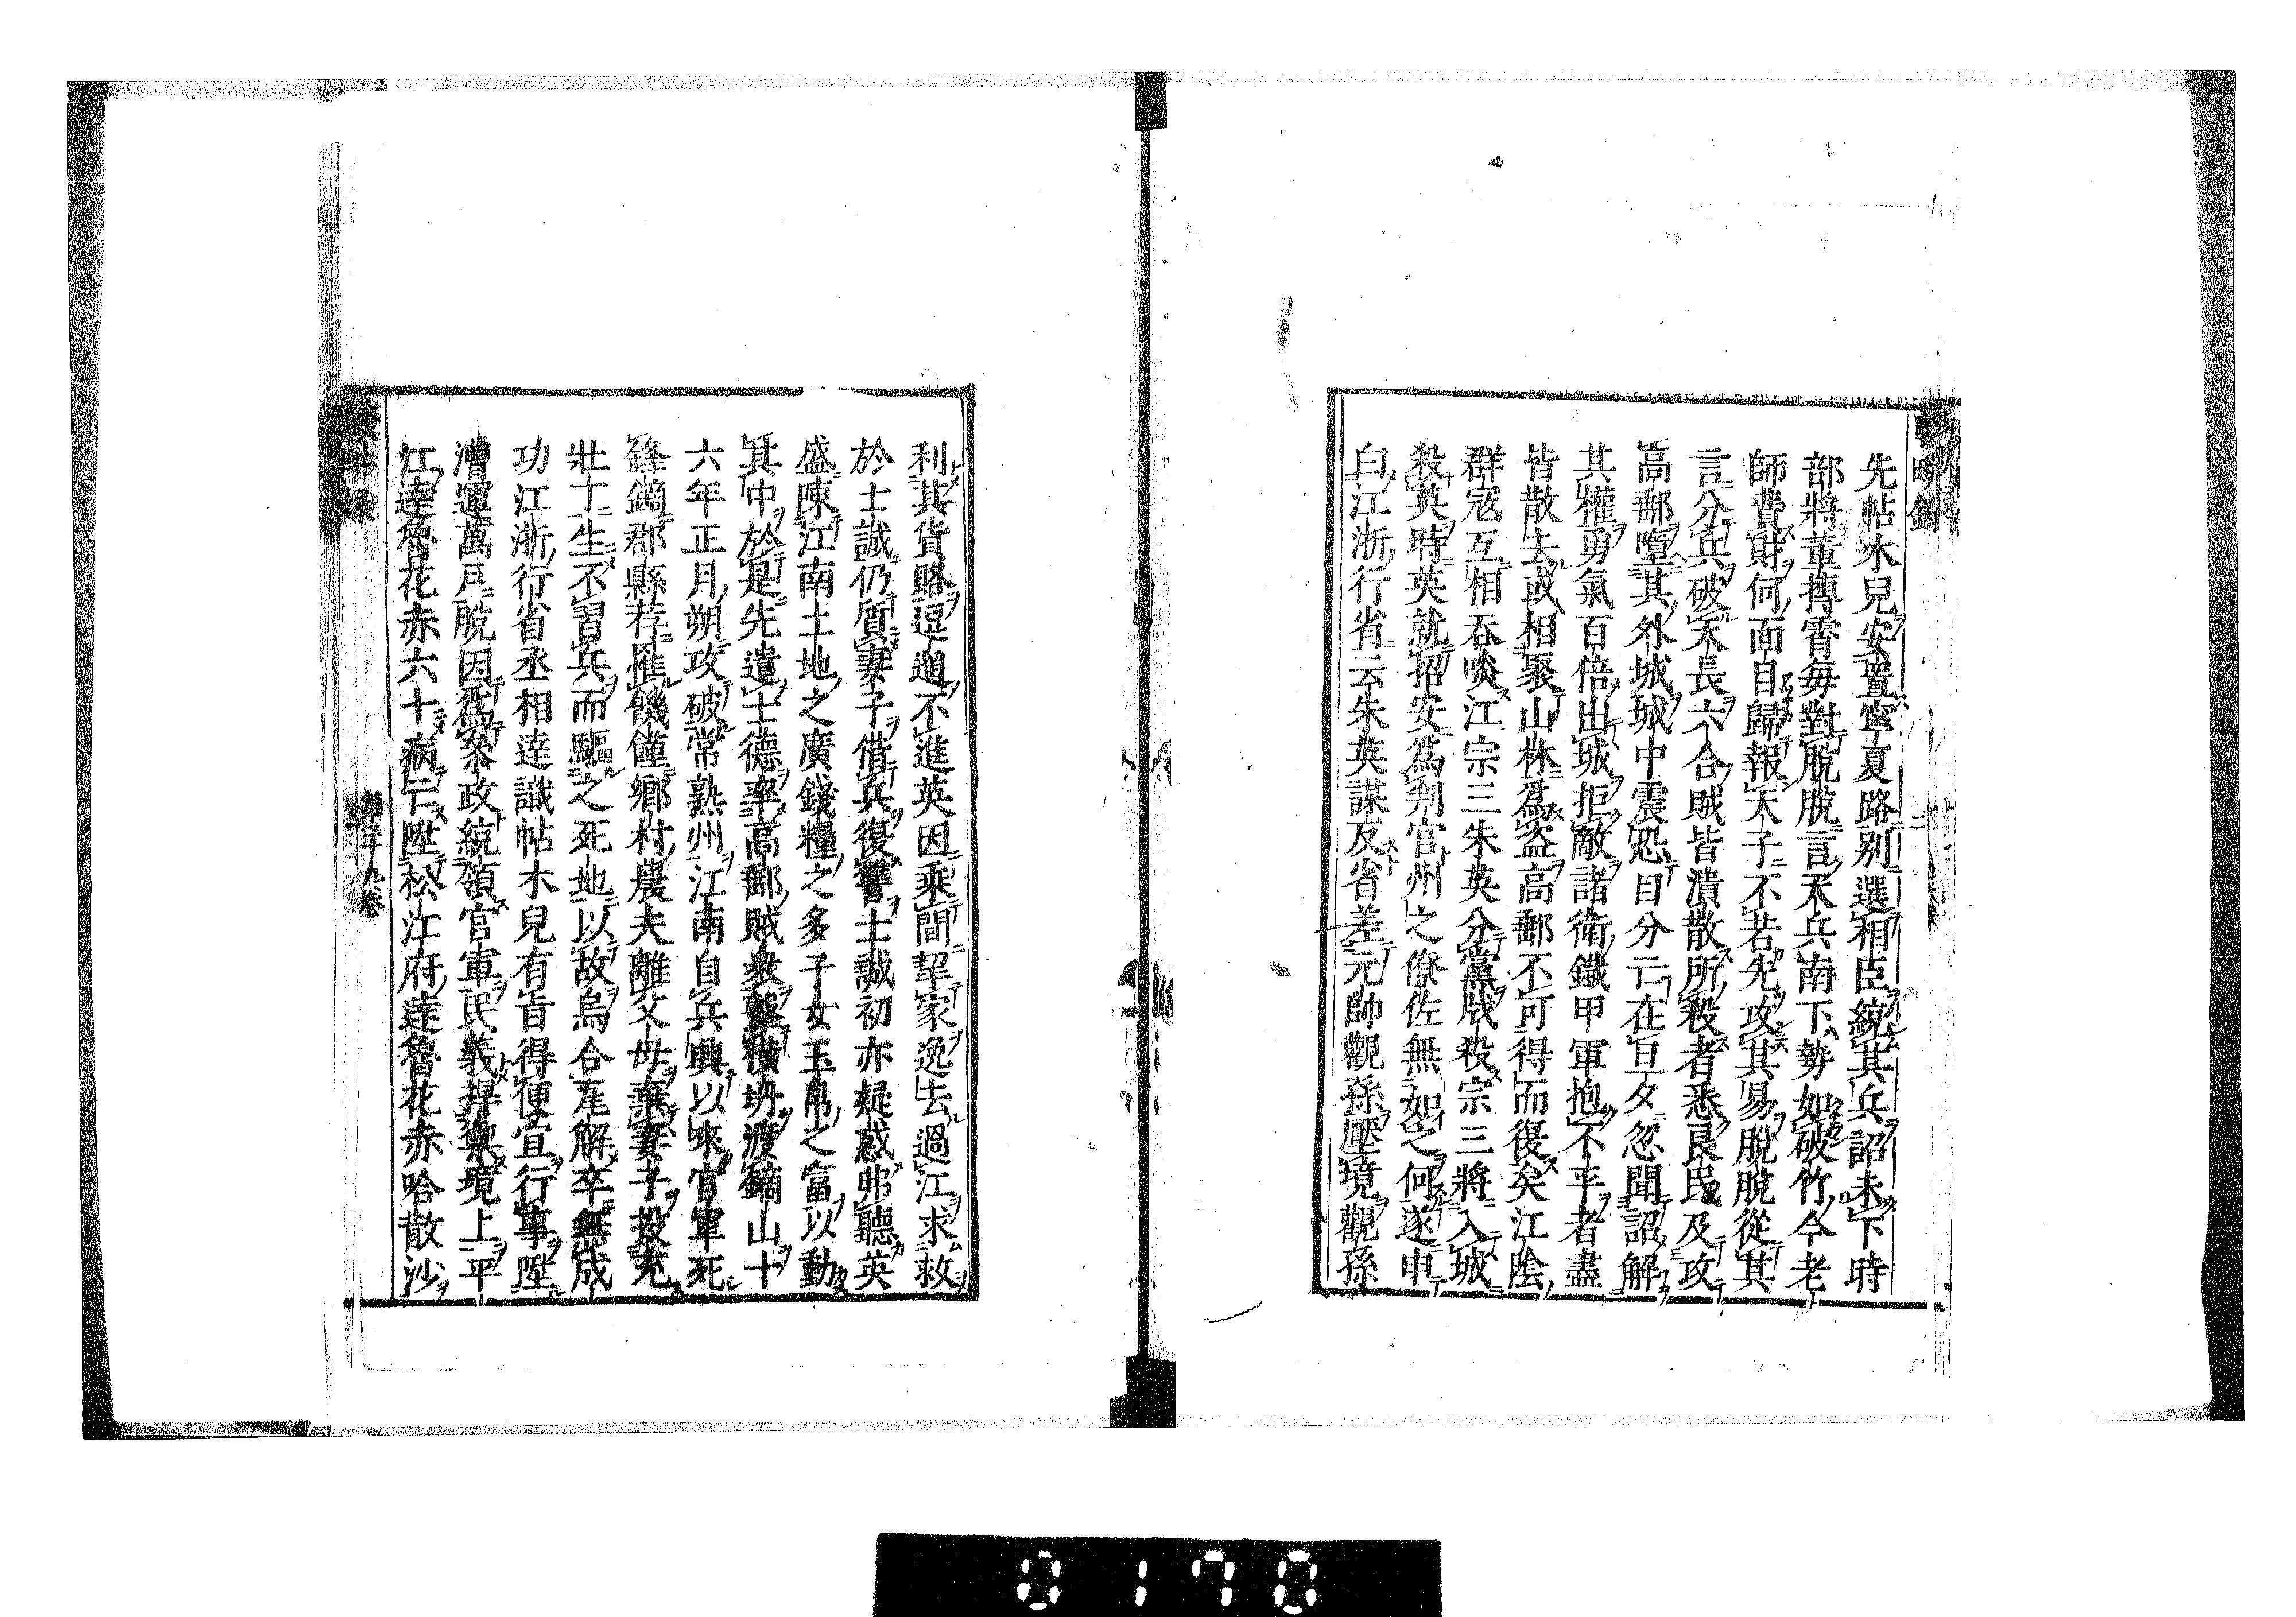 先帖木兒安置寧夏路別選相臣統其兵詔未下時
部將董摶霄每對脫脫言天兵南下勢如破竹今老
師費財何面目歸報天子不若先攻其易脫脫從其
言分兵破天長六合賊皆潰散所殺者悉良民及攻
高郵墮其外城城中震恐日分亡在旦夕忽聞詔解
其權勇氣百倍出城拒敵諸衛鐵甲軍抱不平者盡
皆散去或相聚山林爲盗高郵不可得而復矣江陰
群冦互相吞啖江宗三朱英分黨戕殺宗三將入城
殺英時英就招安爲判官州之僚佐無如之何遂申
白江浙行省云朱英謀反省差元帥觀孫壓境觀孫
利其貨賂逗遛不進英因乘間挈家逸去過江求救
於士誠仍質妻子借兵復讐士誠初亦疑惑弗聽英
盛陳江南土地之廣錢糧之多子女玉帛之富以動
其中於是先遣士德率高郵賊衆橫坍渡鏑山十
六年正月朔攻破常熟州江南自兵興以來官軍死
鋒鏑郡縣荐罹饑饉鄉村農夫離父母棄妻子投充
壯丁生不習兵而驅之死地以故烏合瓦解卒無成
功江浙行省丞相達識帖木兒有旨得便宜行事陞
漕運萬戶脫因爲叅政統領官軍民義捍禦境上平
江達魯花赤六十病亡陞松江府達魯花赤哈散沙
第二十九卷
0170